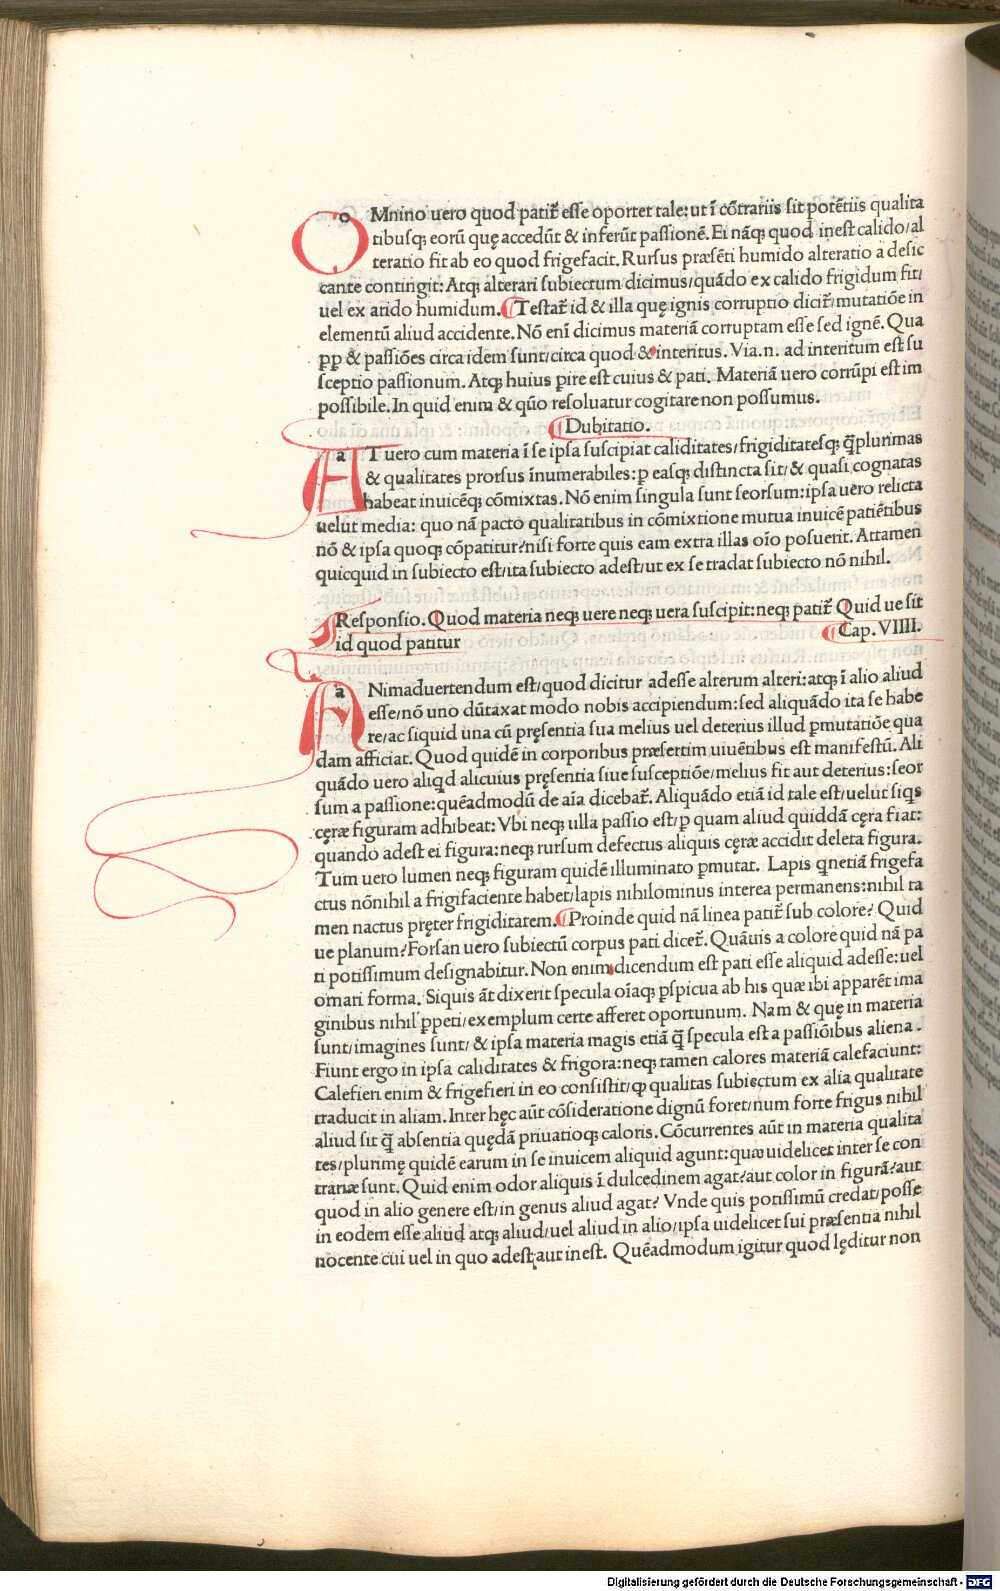 OMnino uero quod patit᷑ esse oportet tale: ut ī cōtrariis sit potētiis qualita
tibusq; eorū quę accedūt & inferūt passionē. Ei nāq; quod inest calido/al
teratio fit ab eo quod frigefacit. Rursus præsēti humido alteratio a desic
cante contingit: Atq; alterari subiectum dicimus/quādo ex calido frigidum fit/
uel ex arido humidum. ¶Testat᷑ id & illa quę ignis corruptio dicit᷑/mutatiōe in
elementū aliud accidente. Nō eni dicimus materiā corruptam esse sed ignē. Qua
ꝓp & passiōes circa idem sunt/circa quod & interitus. Via.n. ad interitum est su
sceptio passionum. Atq; huius ꝑire est cuius & pati. Materiā uero corrūpi est im
possibile. In quid enim & qūo resoluatur cogitare non possumus.
¶Dubitatio.
AT uero cum materia ī se ipsa suscipiat caliditates/frigiditatesq; q̄plurimas
& qualitates prorsus īnumerabiles: ꝑ easq; distincta sit/& quasi cognatas
habeat inuicēq; cōmixtas. Nō enim singula sunt seorsum: ipsa uero relicta
uelut media: quo nā pacto qualitatibus in cōmixtione mutua inuicē patiētibus
nō & ipsa quoq; cōpatitur?nisi forte quis eam extra illas oīo posuerit. Attamen
quicquid in subiecto est/ita subiecto adest/ut ex se tradat subiecto nō nihil.
Responsio. Quod materia neq; uere neq; uera suscipit: neq; patit᷑ Quid ue sit
id quod patitur ¶Cap. VIIII.
ANimaduertendum est/quod dicitur adesse alterum alteri: atq; ī alio aliud
esse/nō uno dūtaxat modo nobis accipiendum: sed aliquādo ita se habe
re/ac siquid una cū pręsentia sua melius uel deterius illud ꝑmutatiōe qua
dam afficiat. Quod quidē in corporibus præsertim uiuētibus est manifestū. Ali
quādo uero aliqd alicuius pręsentia siue susceptiōe/melius fit aut deterius: seor
sum a passione: quēadmodū de aīa dicebat᷑. Aliquādo etiā id tale est/uelut siqs
cęræ figuram adhibeat: Vbi neq; ulla passio est/ꝑ quam aliud quiddā cęra fiat:
quando adest ei figura: neq; rursum defectus aliquis cęræ accidit deleta figura.
Tum uero lumen neq; figuram quidē illuminato ꝑmutat. Lapis q netiā frigefa
ctus nōnihil a frigifaciente habet/lapis nihilominus interea permanens: nihil ta
men nactus pręter frigiditatem. ¶Proinde quid nā linea patit᷑ sub colore? Quid
ue planum?Forsan uero subiectū corpus pati dicet᷑. Quāuis a colore quid nā pa
ti potissimum designabitur. Non enim dicendum est pati esse aliquid adesse: uel
ornari forma. Siquis āt dixerit specula oīaq; ꝑspicua ab his quæ ibi apparēt ima
ginibus nihil ꝑpeti/exemplum certe afferet oportunum. Nam & quę in materia
sunt/imagines sunt/ & ipsa materia magis etiā q̄ specula est a passiōibus aliena.
Fiunt ergo in ipsa caliditates & frigora: neq; tamen calores materiā calefaciunt:
Calefieri enim & frigefieri in eo consistit/ꝙ qualitas subiectum ex alia qualitate
traducit in aliam. Inter hęc aūt cōsideratione dignū foret/num forte frigus nihil
aliud sit q̄ absentia quędā priuatioq; caloris. Cōcurrentes aūt in materia qualita
tes/plurimę quidē earum in se inuicem aliquid agunt: quæ uidelicet inter se con
trariæ sunt. Quid enim odor aliquis ī dulcedinem agat?aut color in figurā?aut
quod in alio genere est/in genus aliud agat? Vnde quis potissimū credat/posse
in eodem esse aliud atq; aliud/uel aliud in alio/ipsa uidelicet sui præsentia nihil
nocente cui uel in quo adest aut inest. Quēadmodum igitur quod lęditur non
Digitalisierung gefördert durch die Deutsche Forschungsgemeinschaft - DFG